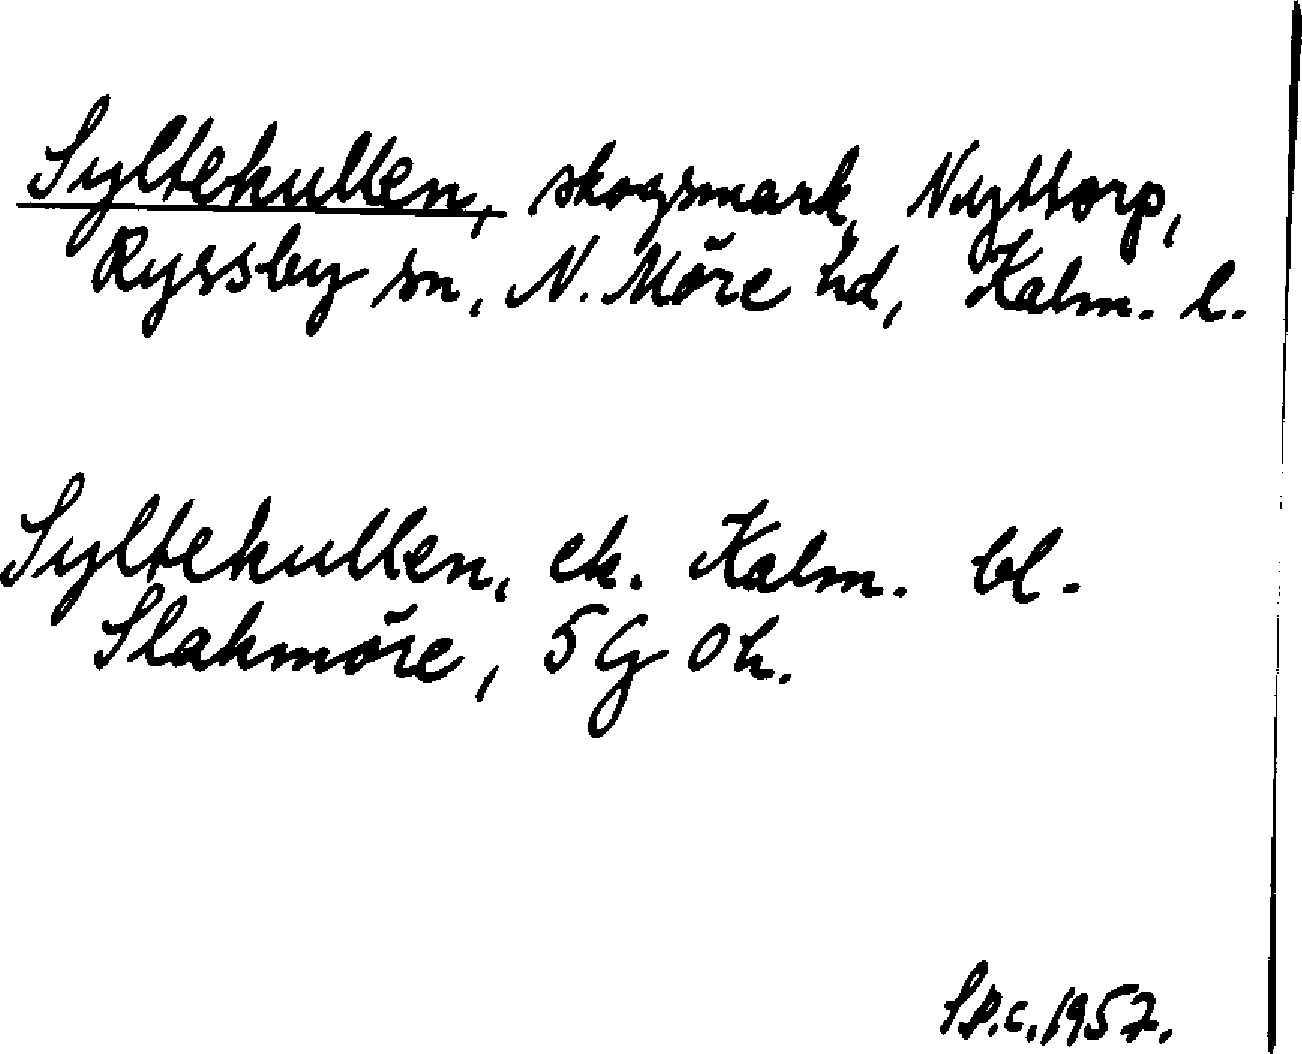 Syltekullen, skogsmark, Nyttorp,
Ryssby sn, N. Möre hd, Kalm. l.
Syltekullen, ek. Kalm. bl.
Slakmöre, 5 G Oh.
1957.